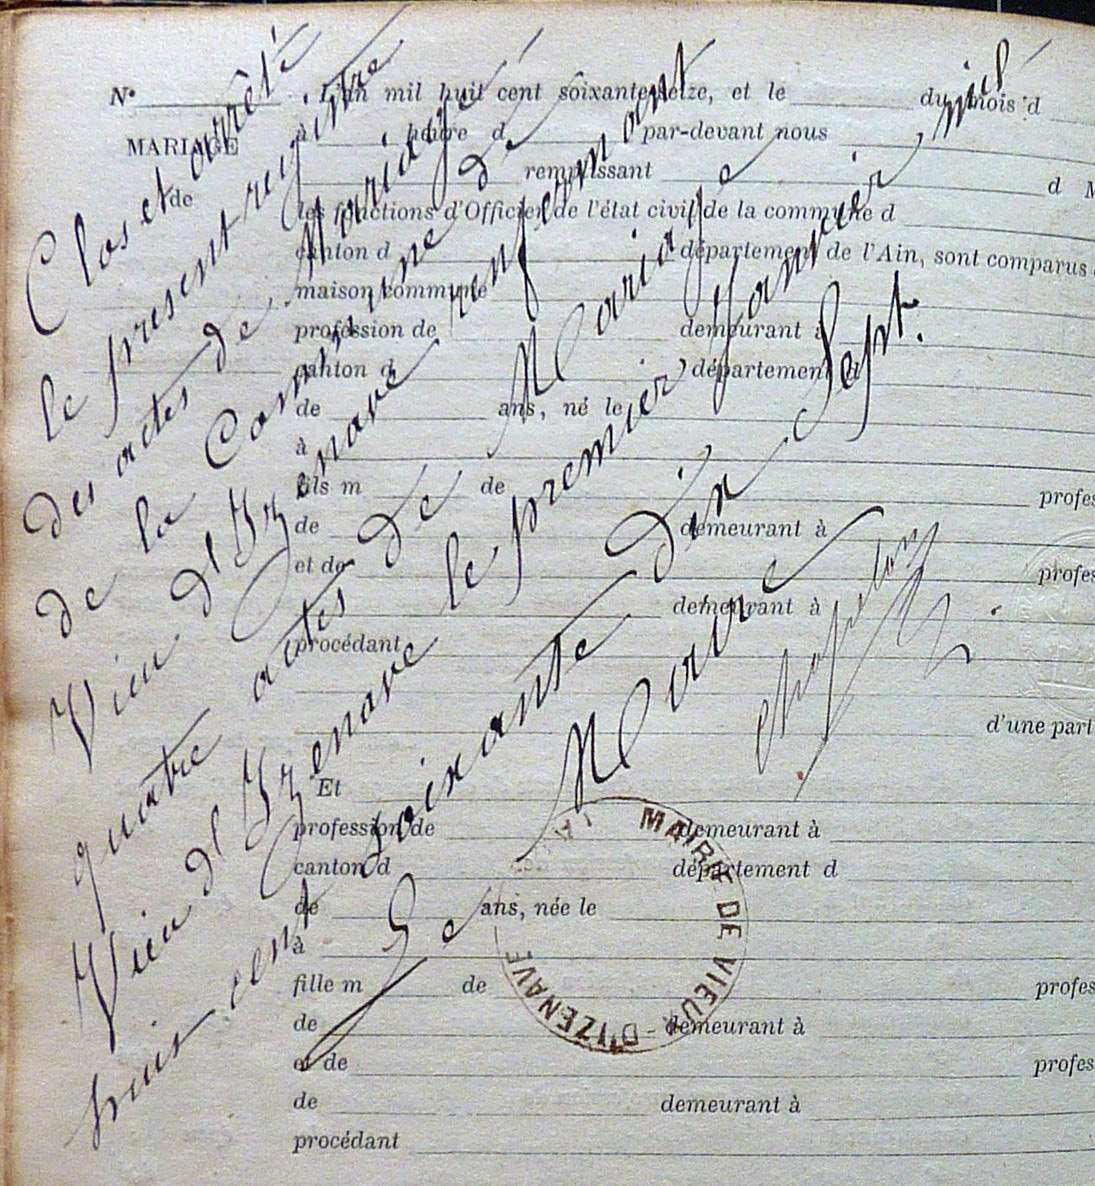 N° L'an mil huit cent soixante-seize, et le du mois d
MARIAGE à heure d par-devant nous
de remplissant d M
les fonctions d'Officier de l'état civil de la commune d
canton d département de l'Ain, sont comparus
maison commune
profession de demeurant à
canton d département d
de ans, né le
à
fils m de profes
de demeurant à
et de profes
demeurant à
procédant
d'une part
Et
profession de demeurant à
canton d département d
de ans, née le
à
fille m de profes
de demeurant à
et de profes
de demeurant à
procédant
Clos et arrêté
le present registre
des actes de Mariage
de la Commune de
Vieu d'Izenave renfermant
quatre actes de Mariage
Vieu d'Izenave le premier Janvier mil
huit cent soixante dix Sept.
Le Maire
MAIRIE DE VIEUX D'IZENAVE